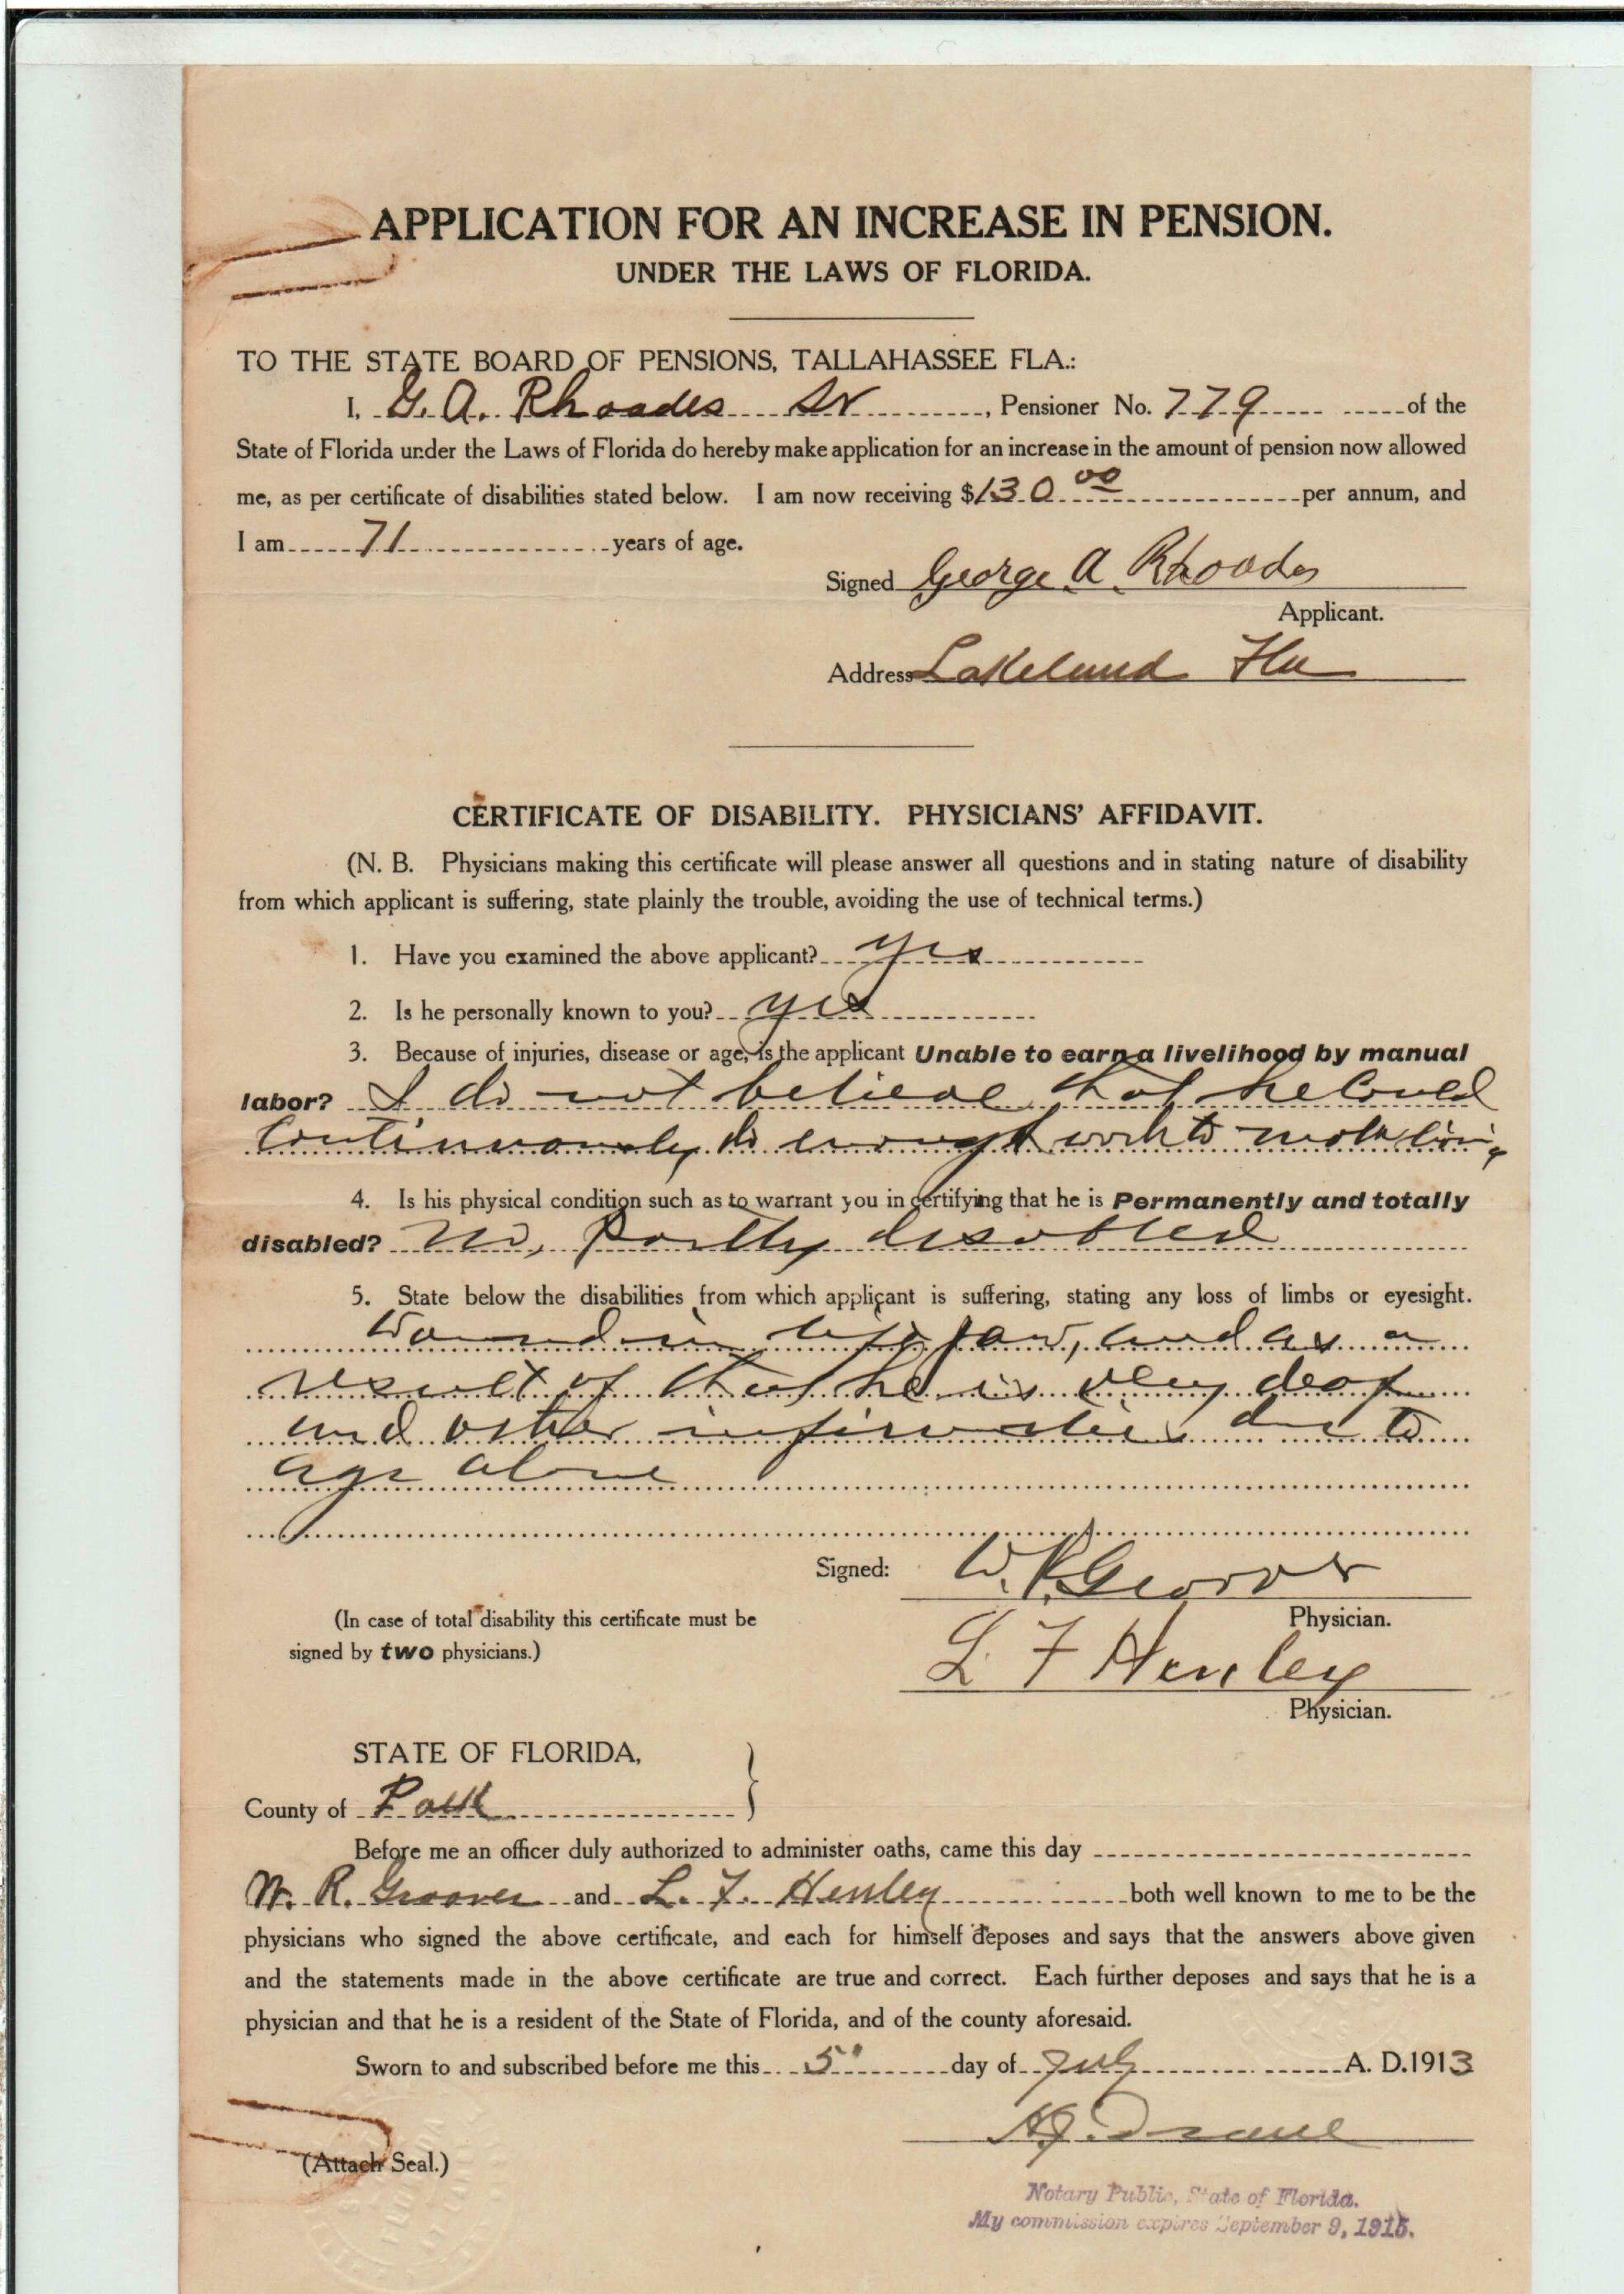 APPLICATION FOR AN INCREASE IN PENSION.
UNDER THE LAWS OF FLORIDA.
TO THE STATE BOARD OF PENSIONS, TALLAHASSEE FLA.:
I, G. A. Rhoades Sr, Pensioner No. 779 of the
State of Florida under the Laws of Florida do hereby make application for an increase in the amount of pension now allowed
me, as per certificate of disabilities stated below. I am now receiving $130.00 per annum, and
I am 71 years of age.
Signed George A Rhoades
Applicant.
Address Lakeland Fla
CERTIFICATE OF DISABILITY. PHYSICIANS' AFFIDAVIT.
(N. B. Physicians making this certificate will please answer all questions and in stating nature of disability
from which applicant is suffering, state plainly the trouble, avoiding the use of technical terms.)
1. Have you examined the above applicant? yes
2. Is he personally known to you? yes
3. Because of injuries, disease or age, is the applicant Unable to earn a livelihood by manual
labor? I do not believe that he could
continuously do enough work to make living
4. Is his physical condition such as to warrant you in certifying that he is Permanently and totally
disabled? No, partly disabled
5. State below the disabilities from which applicant is suffering, stating any loss of limbs or eyesight.
Wound in left jaw, and as a
result of that he is very deaf
and other infirmities due to
age alone
Signed: W. R. Groover
Physician.
(In case of total disability this certificate must be
signed by two physicians.)
L F Henley
Physician.
STATE OF FLORIDA,
County of Polk
Before me an officer duly authorized to administer oaths, came this day
W. R. Groover and L. F. Henley both well known to me to be the
physicians who signed the above certificate, and each for himself deposes and says that the answers above given
and the statements made in the above certificate are true and correct. Each further deposes and says that he is a
physician and that he is a resident of the State of Florida, and of the county aforesaid.
Sworn to and subscribed before me this 5" day of July A. D. 1913
H. J. Drane
(Attach Seal.)
Notary Public, State of Florida.
My commission expires September 9, 1915.